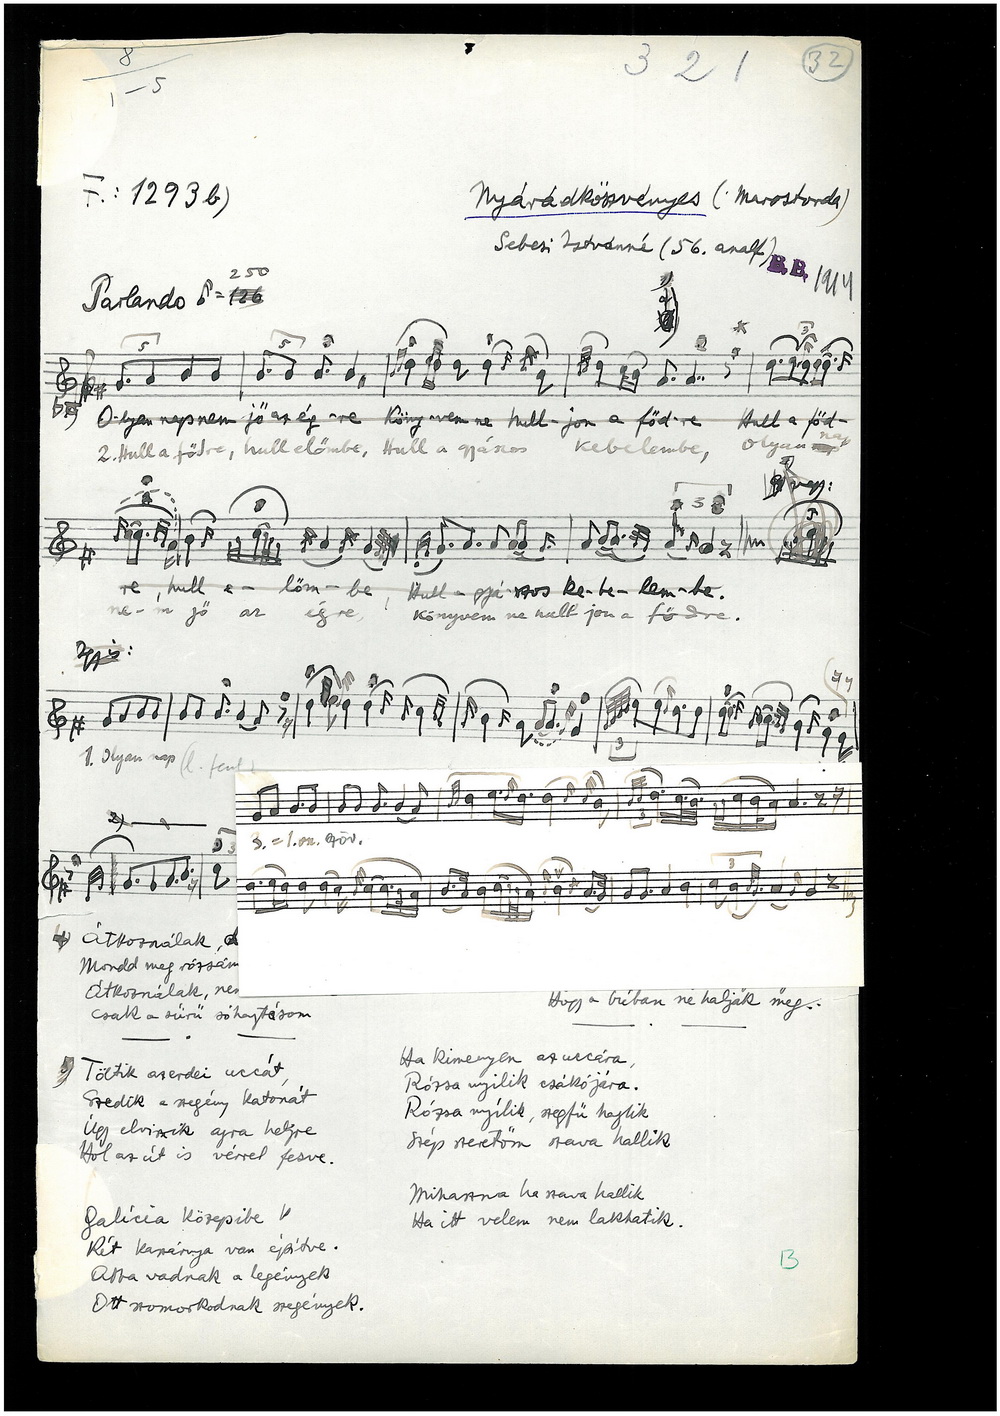 8
1-5
3 2 1
32
F.: 1293 b)
Nyárádköszvényes (: Marostorda)
Sebesi Istvánné (56. analf)
B.B. 1914
250
Parlando ♪= 126
5 5 3
O-lyan nap nem jő az ég-re Köny-vem ne hull-jon a főd-re Hull a főd-
2. Hull a főDre, hull előmbe, Hull a gyászos kebelembe, Olyan nap
3
vagy:
re, hull e- lőm- be, Hull a gyá-szos ke-be-lem-be.
ne-m jő az égre, Könyvem ne hull jon a főDre.
3
1. Olyan nap (l. fent)
3
3. = 1. sz. szöv.
2)
3
3
4 Átkoználak, de
Mondd meg rózsám
Átkoználak, nem
Csak a sűrű sóhajtásom
Hogy a búban ne halják meg.
5 Töltik aszerdei uccát,
Szedik a szegény katonát
Úgy elviszik azra helyre
Hol az út is vérrel festve.
Galícia közepibe
Két kaszárnya van építve.
Abba vadnak a legények
Ott szomorkodnak szegények.
Ha kimenyen az uccára,
Rózsa nyílik csákójára.
Rózsa nyílik, szegfű hajlik
Szép szeretőm szava hallik
Mihaszna ha szava hallik
Ha itt velem nem lakhatik.
B